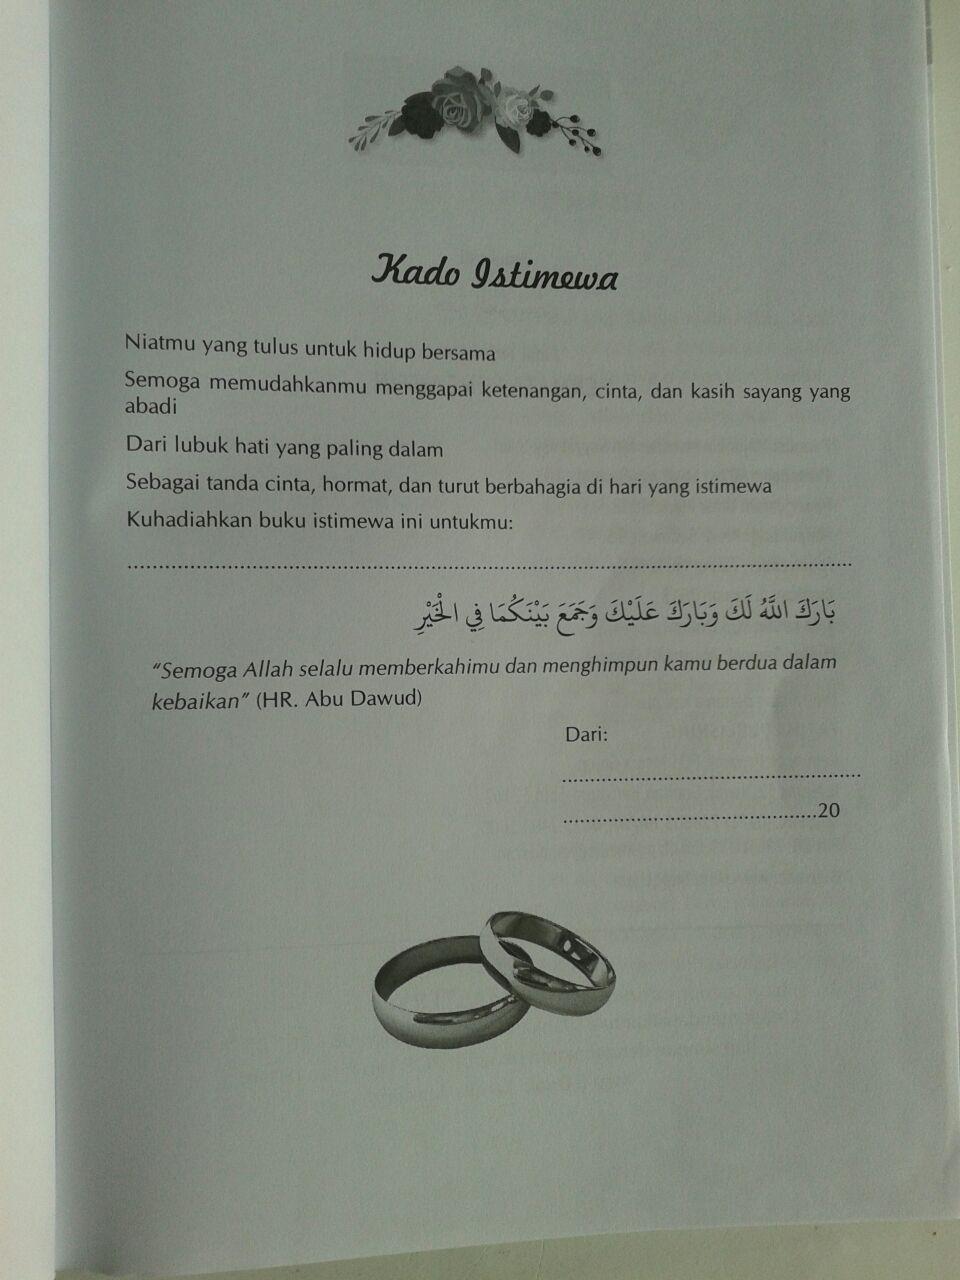 Kado Istimewa
Niatmu yang tulus untuk hidup bersama
Semoga memudahkanmu menggapai ketenangan, cinta, dan kasih sayang yang
abadi
Dari lubuk hati yang paling dalam
Sebagai tanda cinta, hormat, dan turut berbahagia di hari yang istimewa
Kuhadiahkan buku istimewa ini untukmu:
بَارَكَ اللَّهُ لَكَ وَبَارَكَ عَلَيْكَ وَجَمَعَ بَيْنَكُمَا فِي الْخَيْرِ
“Semoga Allah selalu memberkahimu dan menghimpun kamu berdua dalam
kebaikan” (HR. Abu Dawud)
Dari:
........................................20